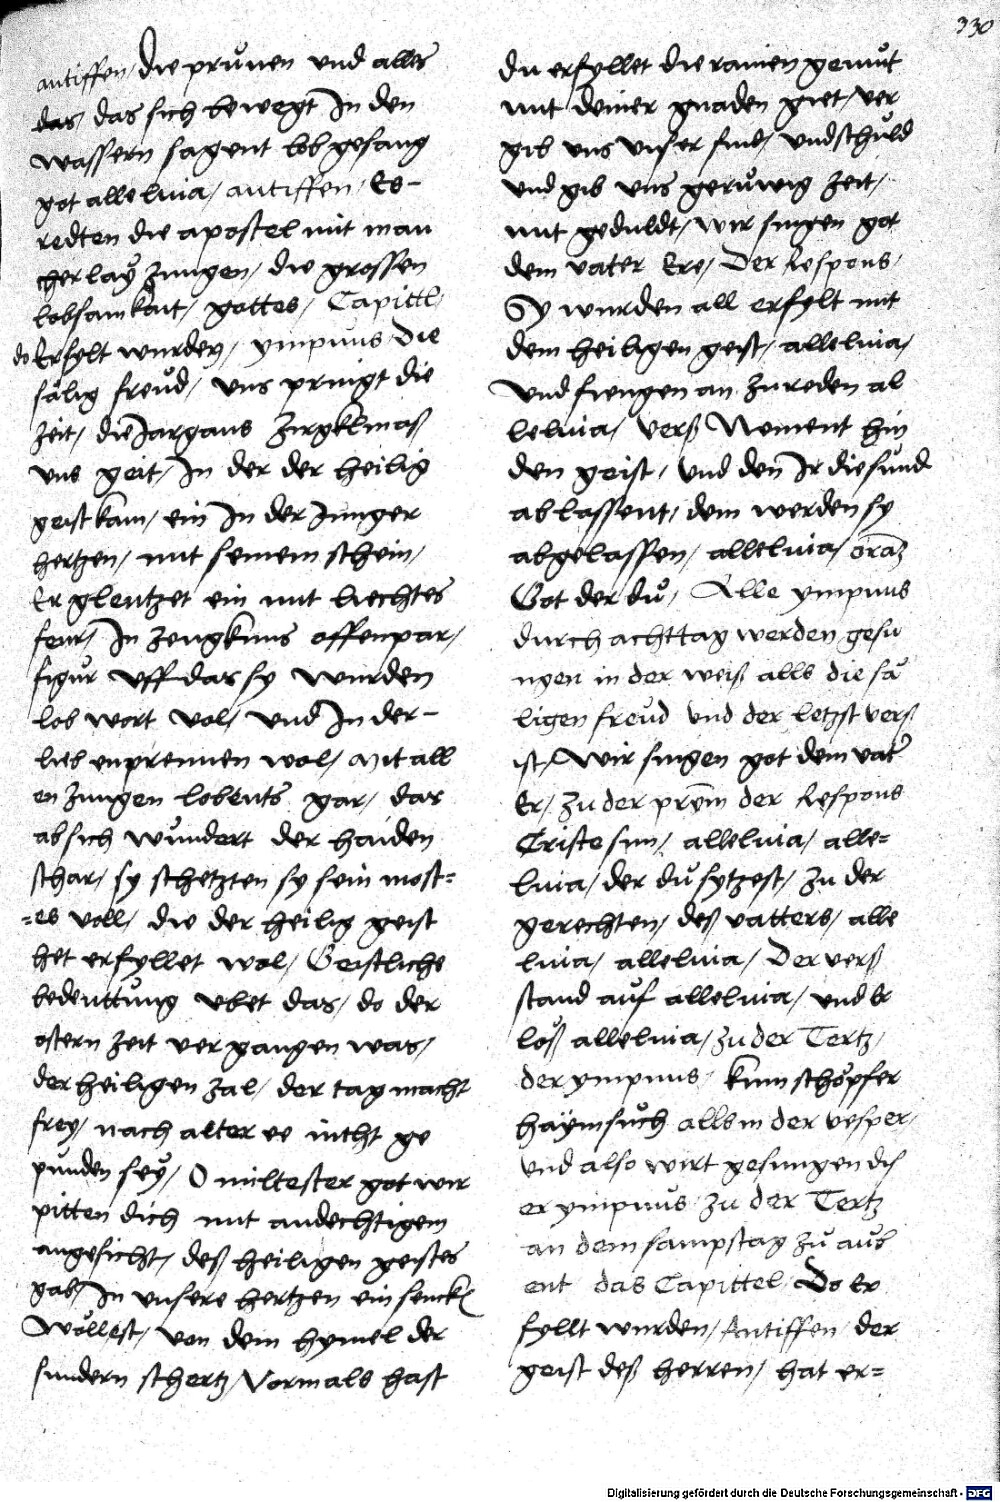 330
antiffen / die průnen vnd alles
das das sich bewegt In den
wassern sagent lob gesang
got alleluia / antiffen / Es-
redten die apostel mit man
cherlaÿ zungen / die grossen
lobsamkait / gottes / Capittl /
do Erfylt wurden / ympnus Die
sälig freůd / vns pringt die
zeit / die Jargans zirgklmaß
vns geit / In der der heilig
geist kam / ein In der Junger
hertzen / mit seinem schein /
Er glentzet ein mit liechtes
feur / In zeugknus offenpar /
figůr vff das sy wurden
lob wort vol / vnd In der-
lieb enprennen wol / Mit all
en zungen lobents gar / dar
ab sich wůndert der haiden
schar / sy schetzten sy sein most=
=es voll / die der heilig geist
het erfyllet wol / Geistliche
bedeuttůng vbet das / do der
ostern zeit vergangen was /
der heiligen zal / der tag macht
frey / nach alter ee nicht ge
punden seÿ / O miltester got wir
pitten dich mit andechtigem
angesicht / deß heiligen geistes
gab / In vnsere hertzen ein senckn
Wöllest / von dem hymel der
sundern schertz / Vormals hast
du erfyllet die rainen gemůt
mit deiner gnaden giet / ver
gib vns vnser sind / vnd schůld
vnd gib vns gerůwig zeit /
mit geduldt / wir singen got
dem vater Ere / Der Respons /
Sy wurden all erfylt mit
dem heiligen geist / alleluia /
vnd fiengen an zu reden al
leluia / verß Nement hin
den geist / vnd den Ir die sůnd
ablassent / dem werden sy
abgelassen / alleluia / oratz
Got der dů / Alle ympnus
durch achttag werden gesu
ngen in der weiß alls die sä
ligen freud vnd der letzst verß
ist / Wir singen got dem vatr
Er / zu der prym der Respons
Criste sun / alleluia / alle=
luia / der dů sytzest / zu der
gerechten / deß vatters / alle
luia / alleluia / Der verß
stand aůf alleluia / vnd Er
löß alleluia / zu der Tertz /
der ympnus / kum schöpfer
haÿmsůch alls in der vesper /
vnd also wirt gesungen dis
er ympnus zu der Tertz
an dem sampstag zů aůs
ent das Capittel / Do Er
fyllt wurden / Antiffen / der
geist deß herren / hat er=
Digitalisierung gefördert durch die Deutsche Forschungsgemeinschaft - DFG